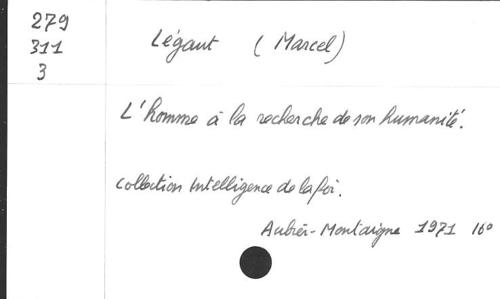 279
311
3
Légaut (Marcel)
L'homme à la recherche de son humanité.
Collection Intelligence de la foi.
Aubier-Montaigne 1971 16°